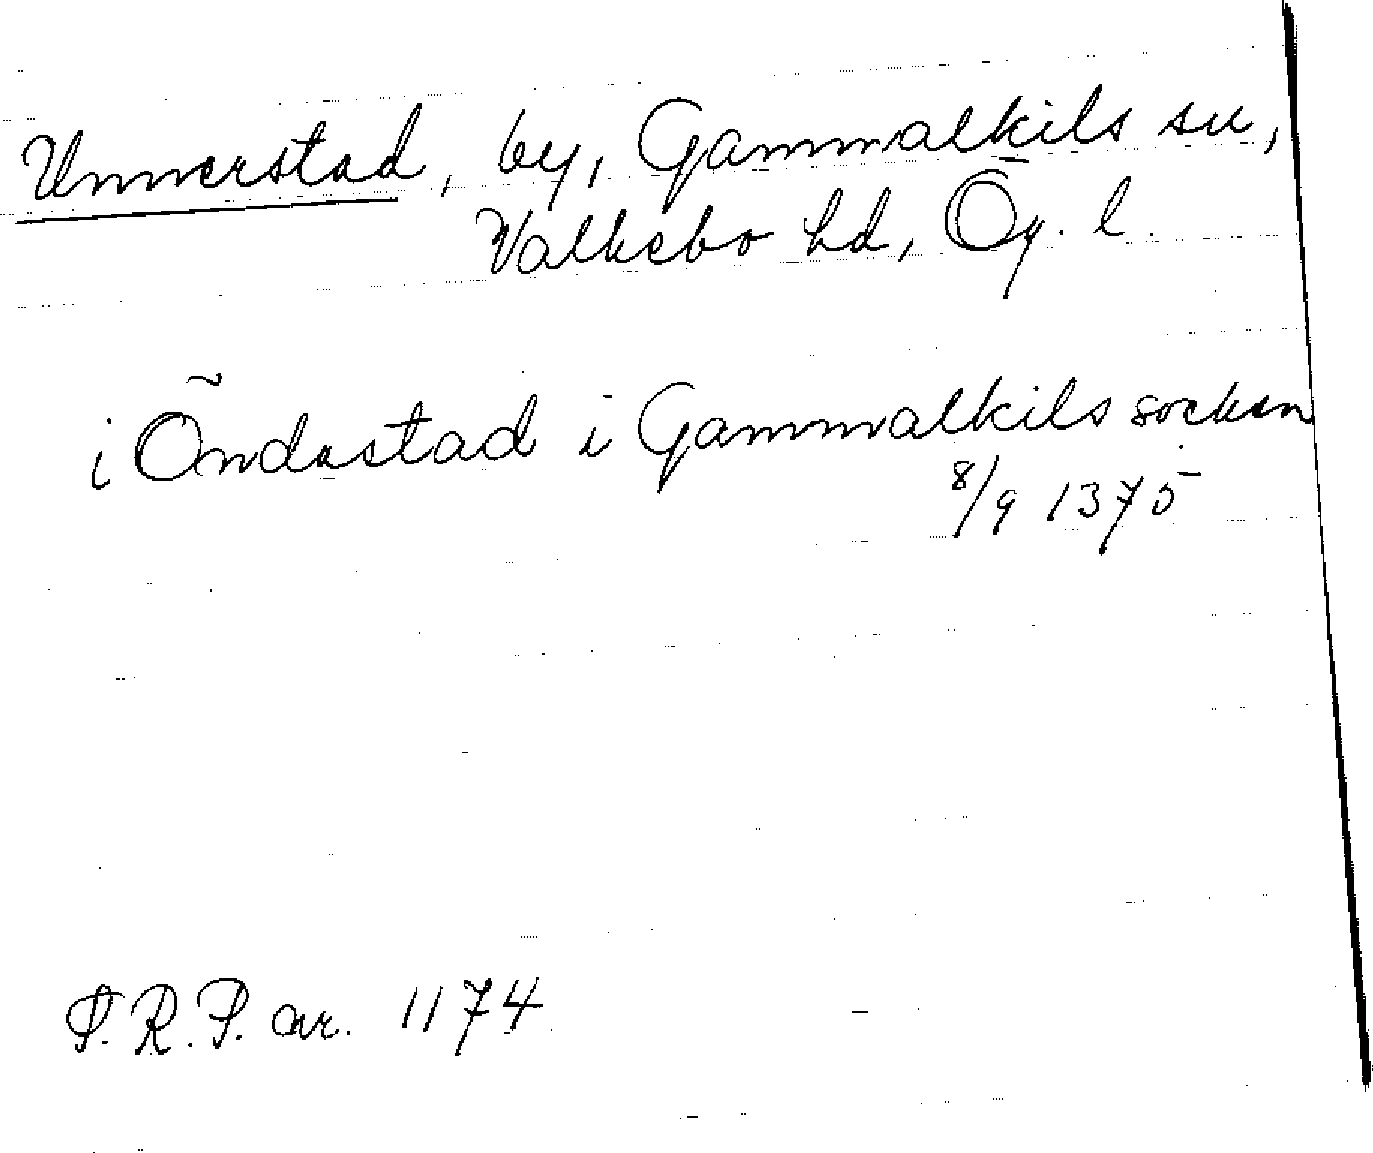 Unnerstad, by, Gammalkils sn,
Valkebo hd, Ög. l.
i Õndastad i Gammalkils socken
8/9 1375
S.R.P. nr. 1174